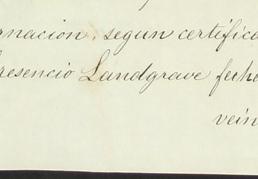 rnacion, segun certifica
resencio Landgrave fech
vein